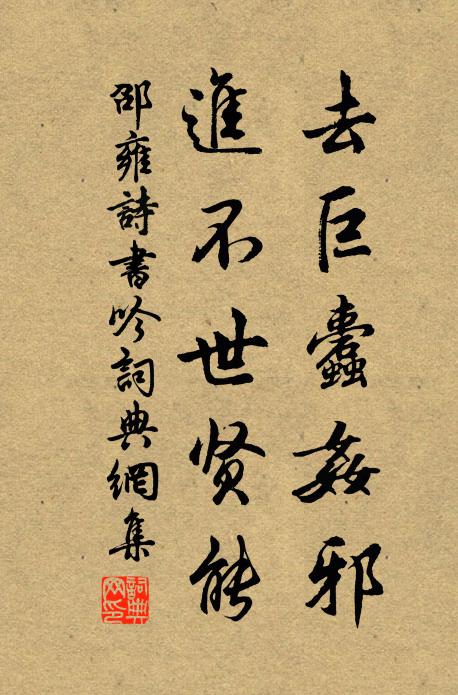 去巨蠹姦邪
進不世贤能
邵雍詩書吟詞典網集
詞典网印